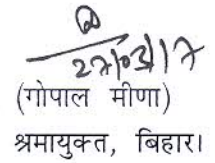 27/03/17
(गोपाल मीणा)
श्रमायुक्त, बिहार।